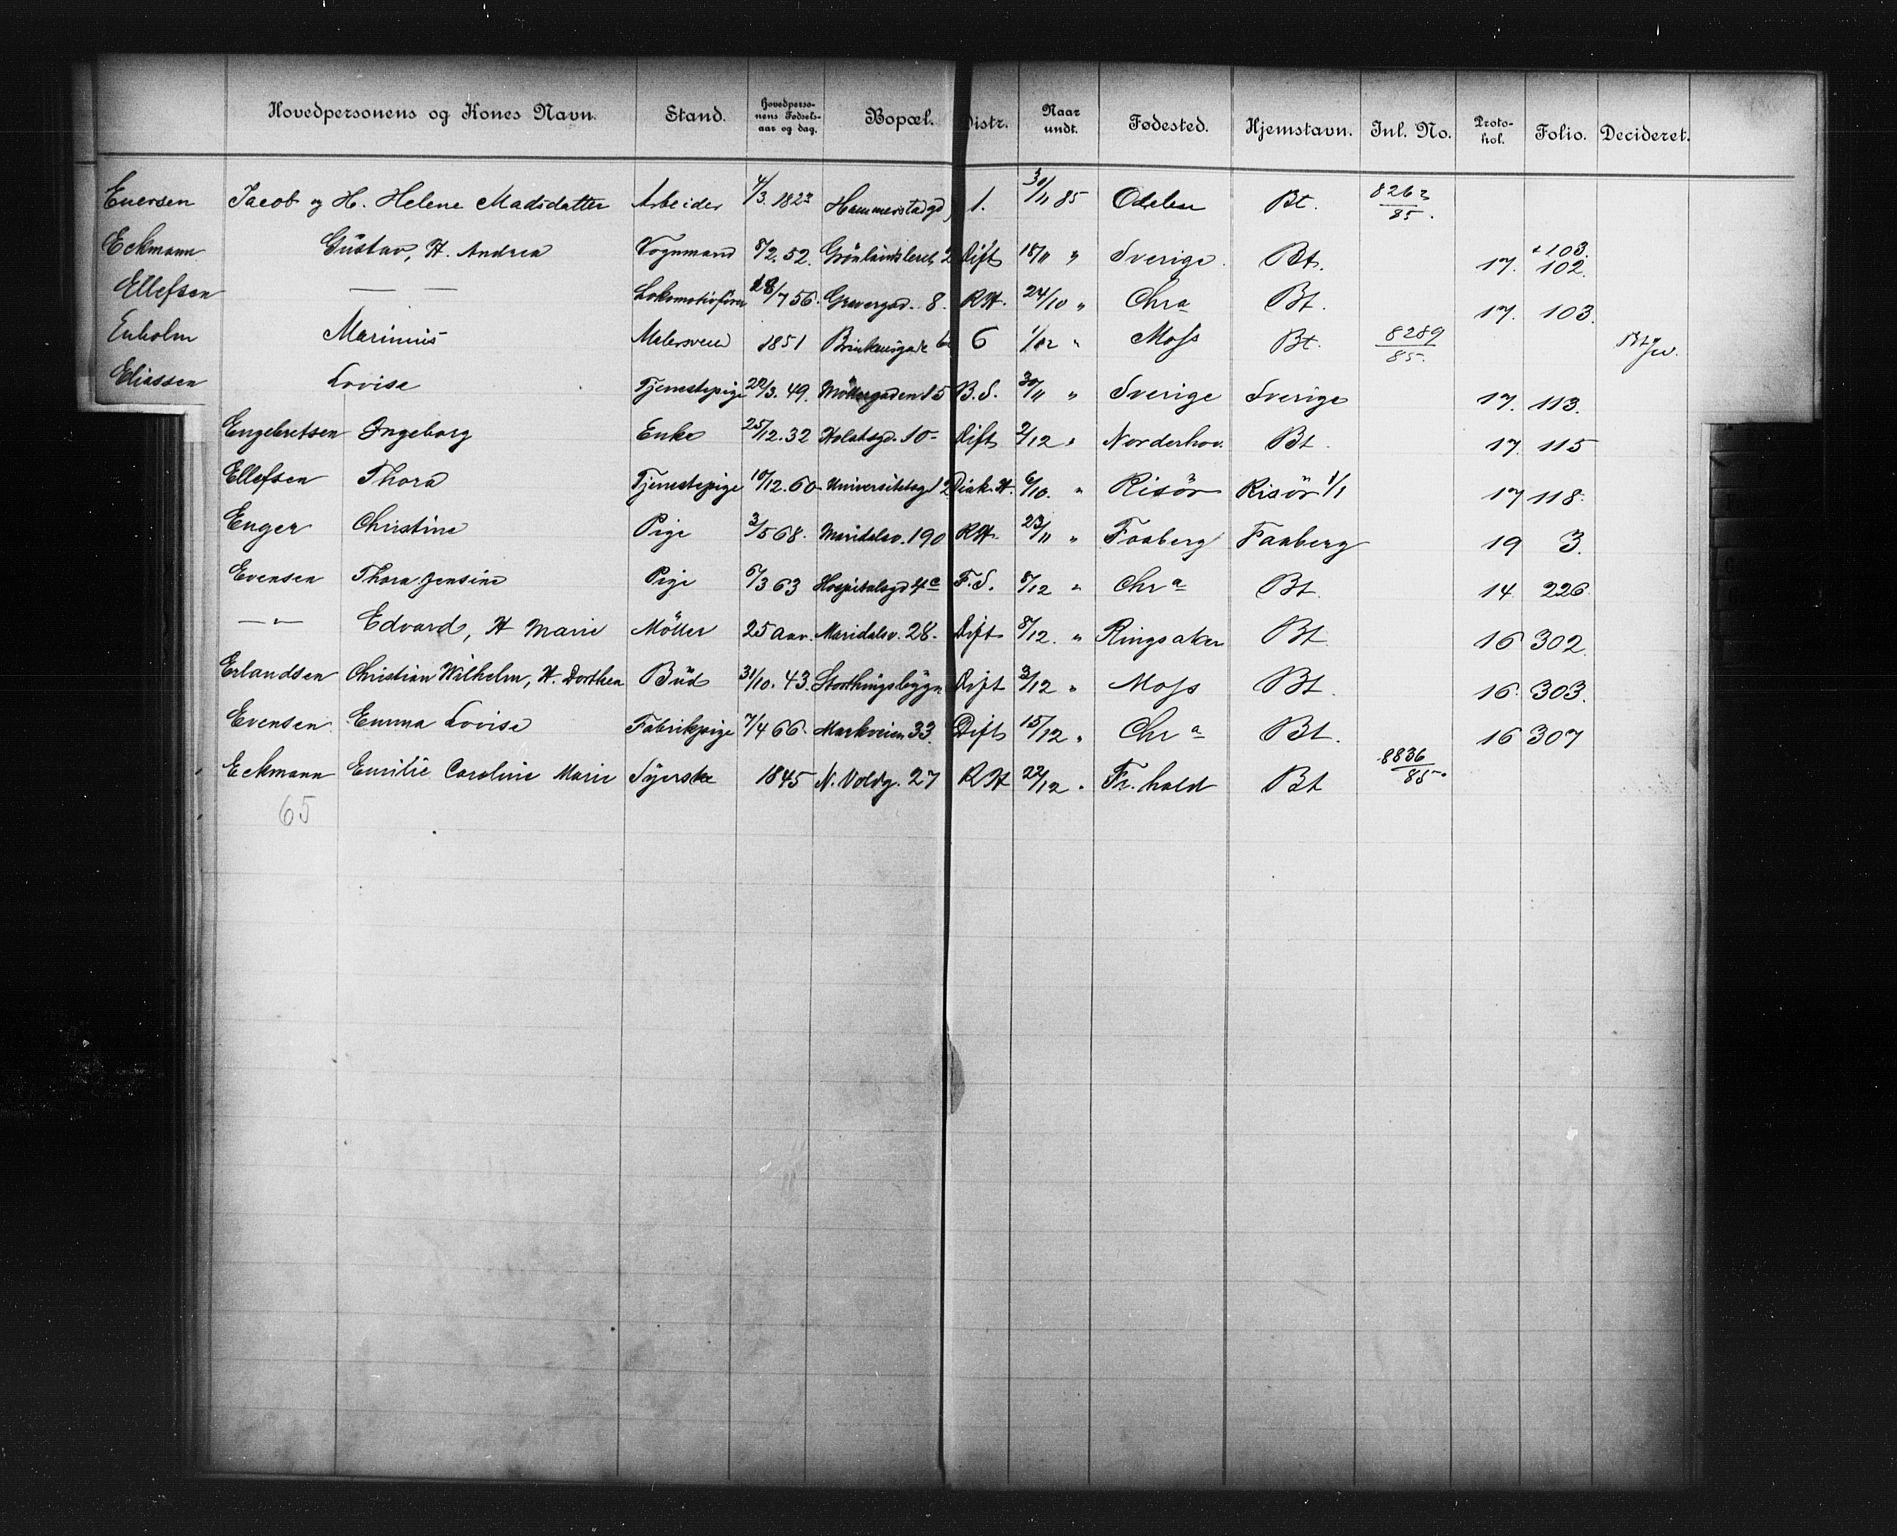 Hovedpersonens og Kones Navn. Stand. Hovedpersonens Fødselsaar og dag. Bopæl. Distr. Naar undt. Fødested. Hjemstavn. Jnl. No. Protokol. Folio. Decideret.
Enersen Jacob og H. Helene Madsdatter Arbeider 4/3. 1823 Hammerstadgd 1. 30/11 85 Odalen Bt. 8263/85.
Eckmann Gustav, H. Andrea Vognmand 5/2. 52. Grönlandsleret 2 Dift 18/11 " Sverige. Bt. 17. + 103. 102.
Ellefsen — — Lokomotivförer 28/7 56. Gravergad. 8. RH. 24/10 " Chra Bt. 17. 103.
Enholm Marinius Malersvend 1851 6 1/12 " Moss Bt. 8289/85.
Eliassen Lovise Tjenestepige 22/3. 49. Möllergaden 15 B.S. 30/11 " Sverige Sverige 17. 113.
Engebretsen Ingeborg Enke 25/12. 32 Holstsgd. 10 Dift 2/12 " Norderhov. Bt. 17. 115
Ellefsen Thora Tjenestepige 10/12. 60 Universitetsg 12 Diak. H. 6/10. " Risör Risör 1/1 17 118.
Enger Christine Pige 3/5 68. Maridalsv. 190 RH. 23/11 " Faaberg Faaberg 19 3.
Evensen Thora Jensine Pige 6/3 63 Hospitalsgd 4c F.S. 8/12 " Chra Bt. 14 226.
— " — Edvard, H Marie Möller 25 Aar. Maridalsv. 28. Dift 8/12. " Ringsaker Bt 16 302.
Erlandsen Christian Wilhelm, H. Dorthea Bud 31/10. 43. Storthingsbygn Dift 3/12 " Moss Bt. 16. 303.
Evensen. Emma Lovise Fabrikpige 7/4 66. Markveien 33. Dift 15/12 " Chra Bt. 16 307
Eckmann Emilie Caroline Marie Syerske 1845 N. Voldg. 27 RH 22/12 " Fr.hald Bt 8836/85
65